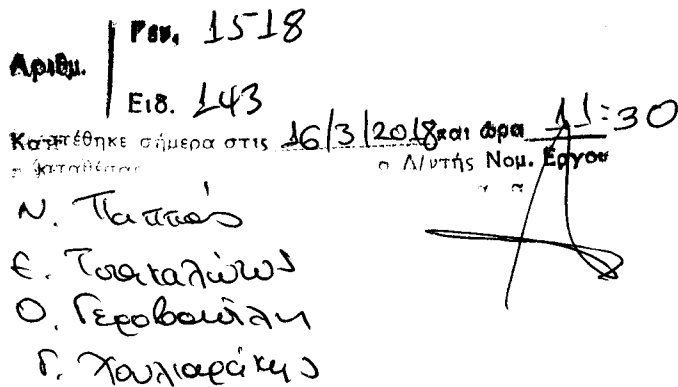 Αριθμ.
Γεν. 1518
Ειδ. 143
Κατατέθηκε σήμερα στις 16/3/2018 και ώρα 11:30
ο Δ/ντής Νομ. Έργου
Ν. Παππάς
Ε. Τσακαλώτος
Ο. Γεροβασίλη
Γ. Χουλιαράκης